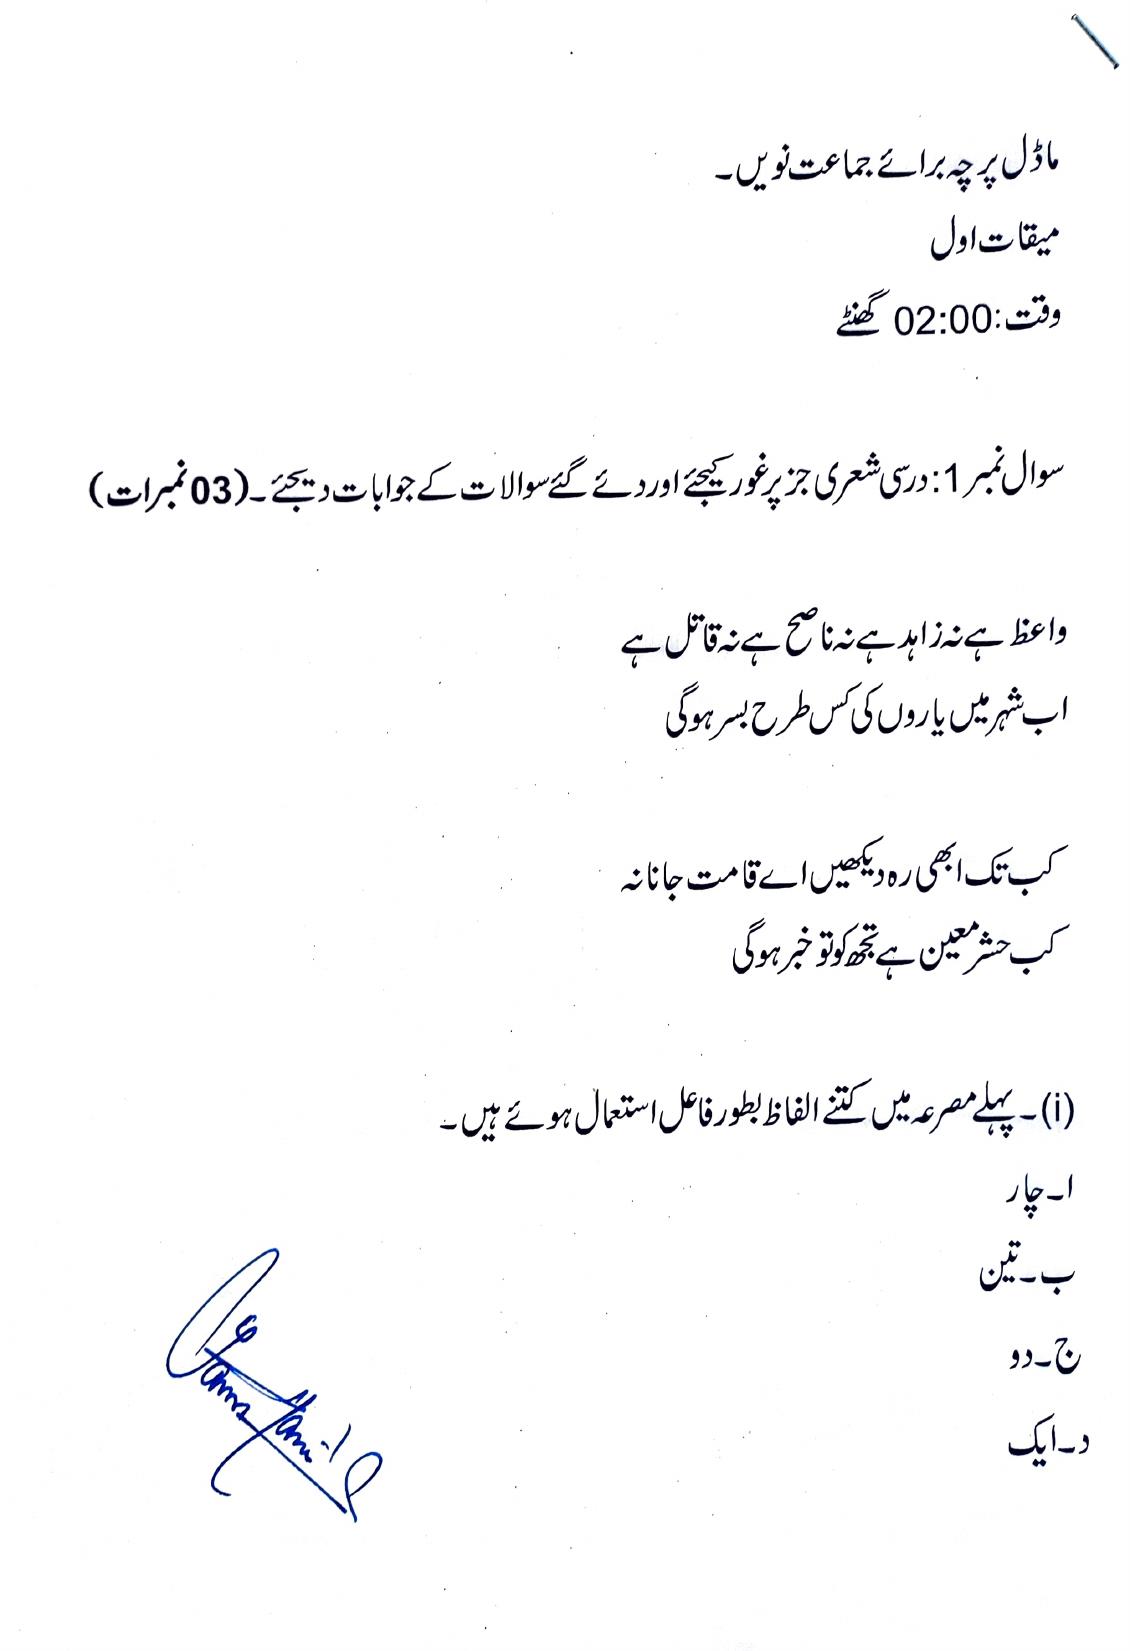 ماڈل پرچہ برائے جماعت نویں۔
میقات اول
وقت:02:00 گھنٹے
سوال نمبر1: درسی شعری جز پر غور کیجئے اور دئے گئے سوالات کے جوابات دیجئے۔(03نمبرات)
واعظ ہے نہ زاہد ہے نہ ناصح ہے نہ قاتل ہے
اب شہر میں یاروں کی کس طرح بسر ہوگی
کب تک ابھی رہ دیکھیں اے قامت جانانہ
کب حشر معین ہے تجھ کو تو خبر ہوگی
(i)۔ پہلے مصرعہ میں کتنے الفاظ بطور فاعل استعمال ہوئے ہیں۔
ا۔چار
ب۔تین
ج۔دو
د۔ایک